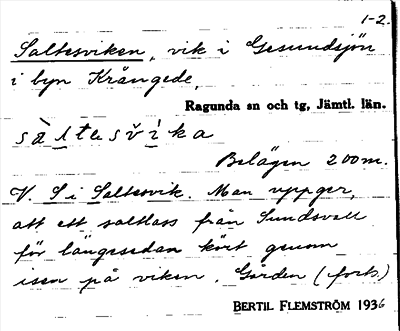 1-2.
Saltesviken, vik i Gesundsjön
i byn Krångede,
Ragunda sn och tg, Jämtl. län.
sàltesv̌ìka
Belägen 200 m.
V. S i Saltesvik. Man uppger,
att ett saltlass från Sundsvall
för längesedan kört genom
isen på viken. Gården (forts)
BERTIL FLEMSTRÖM 1936